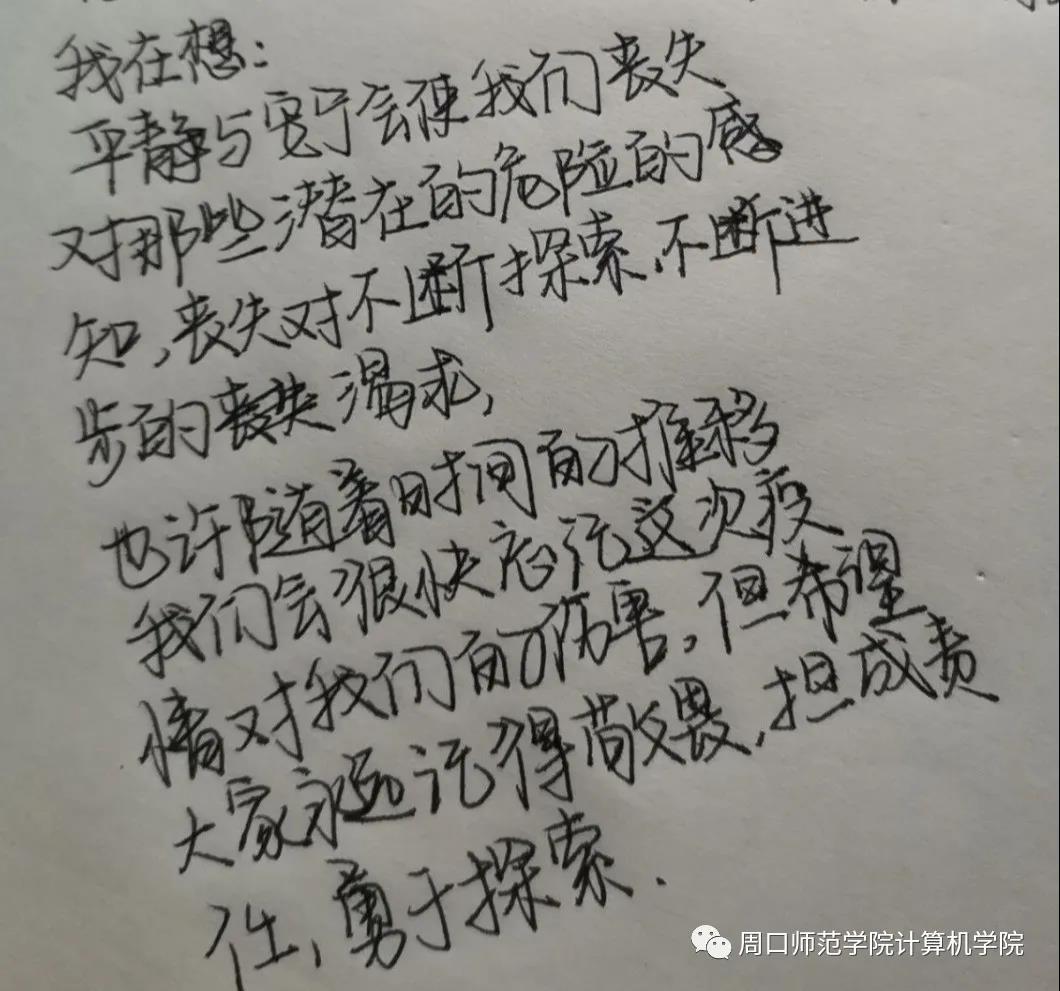 我在想：
平静与宽宁会使我们丧失
对那些潜在的危险的感
知，丧失对不断探索、不断进
步的丧失渴求，
也许随着时间的推移
我们会很快忘记这次疫
情对我们的伤害，但希望
大家永远记得敬畏，担成责
任，勇于探索.
周口师范学院计算机学院